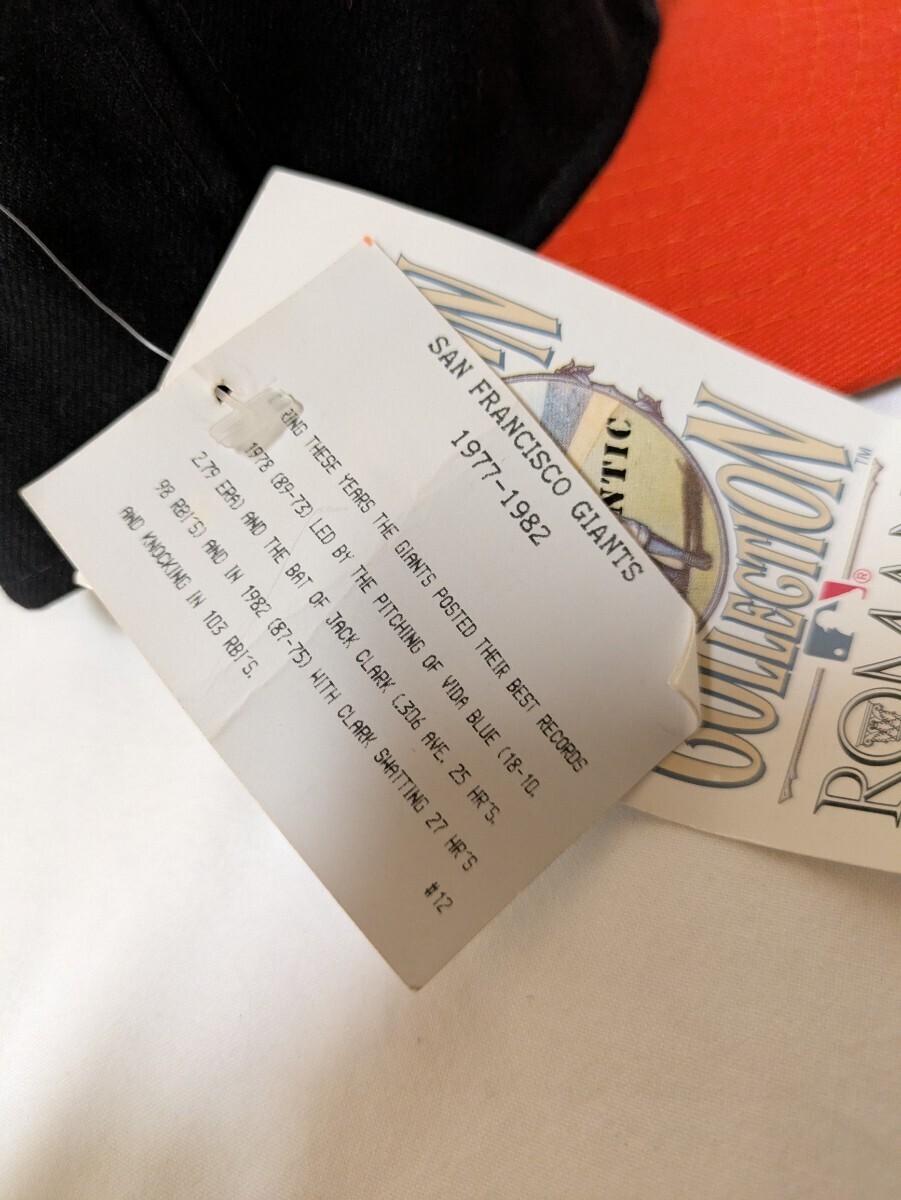 SAN FRANCISCO GIANTS
1977-1982
RING THESE YEARS THE GIANTS POSTED THEIR BEST RECORDS
1978 (89-73) LED BY THE PITCHING OF VIDA BLUE (18-10.
2.79 ERA) AND THE BAT OF JACK CLARK (.306 AVE. 25 HR'S.
98 RBI'S) AND IN 1982 (87-75) WITH CLARK SWATTING 27 HR'S
AND KNOCKING IN 103 RBI'S.
#12
NTIC
COLLECTION
TM
®
ROMAN